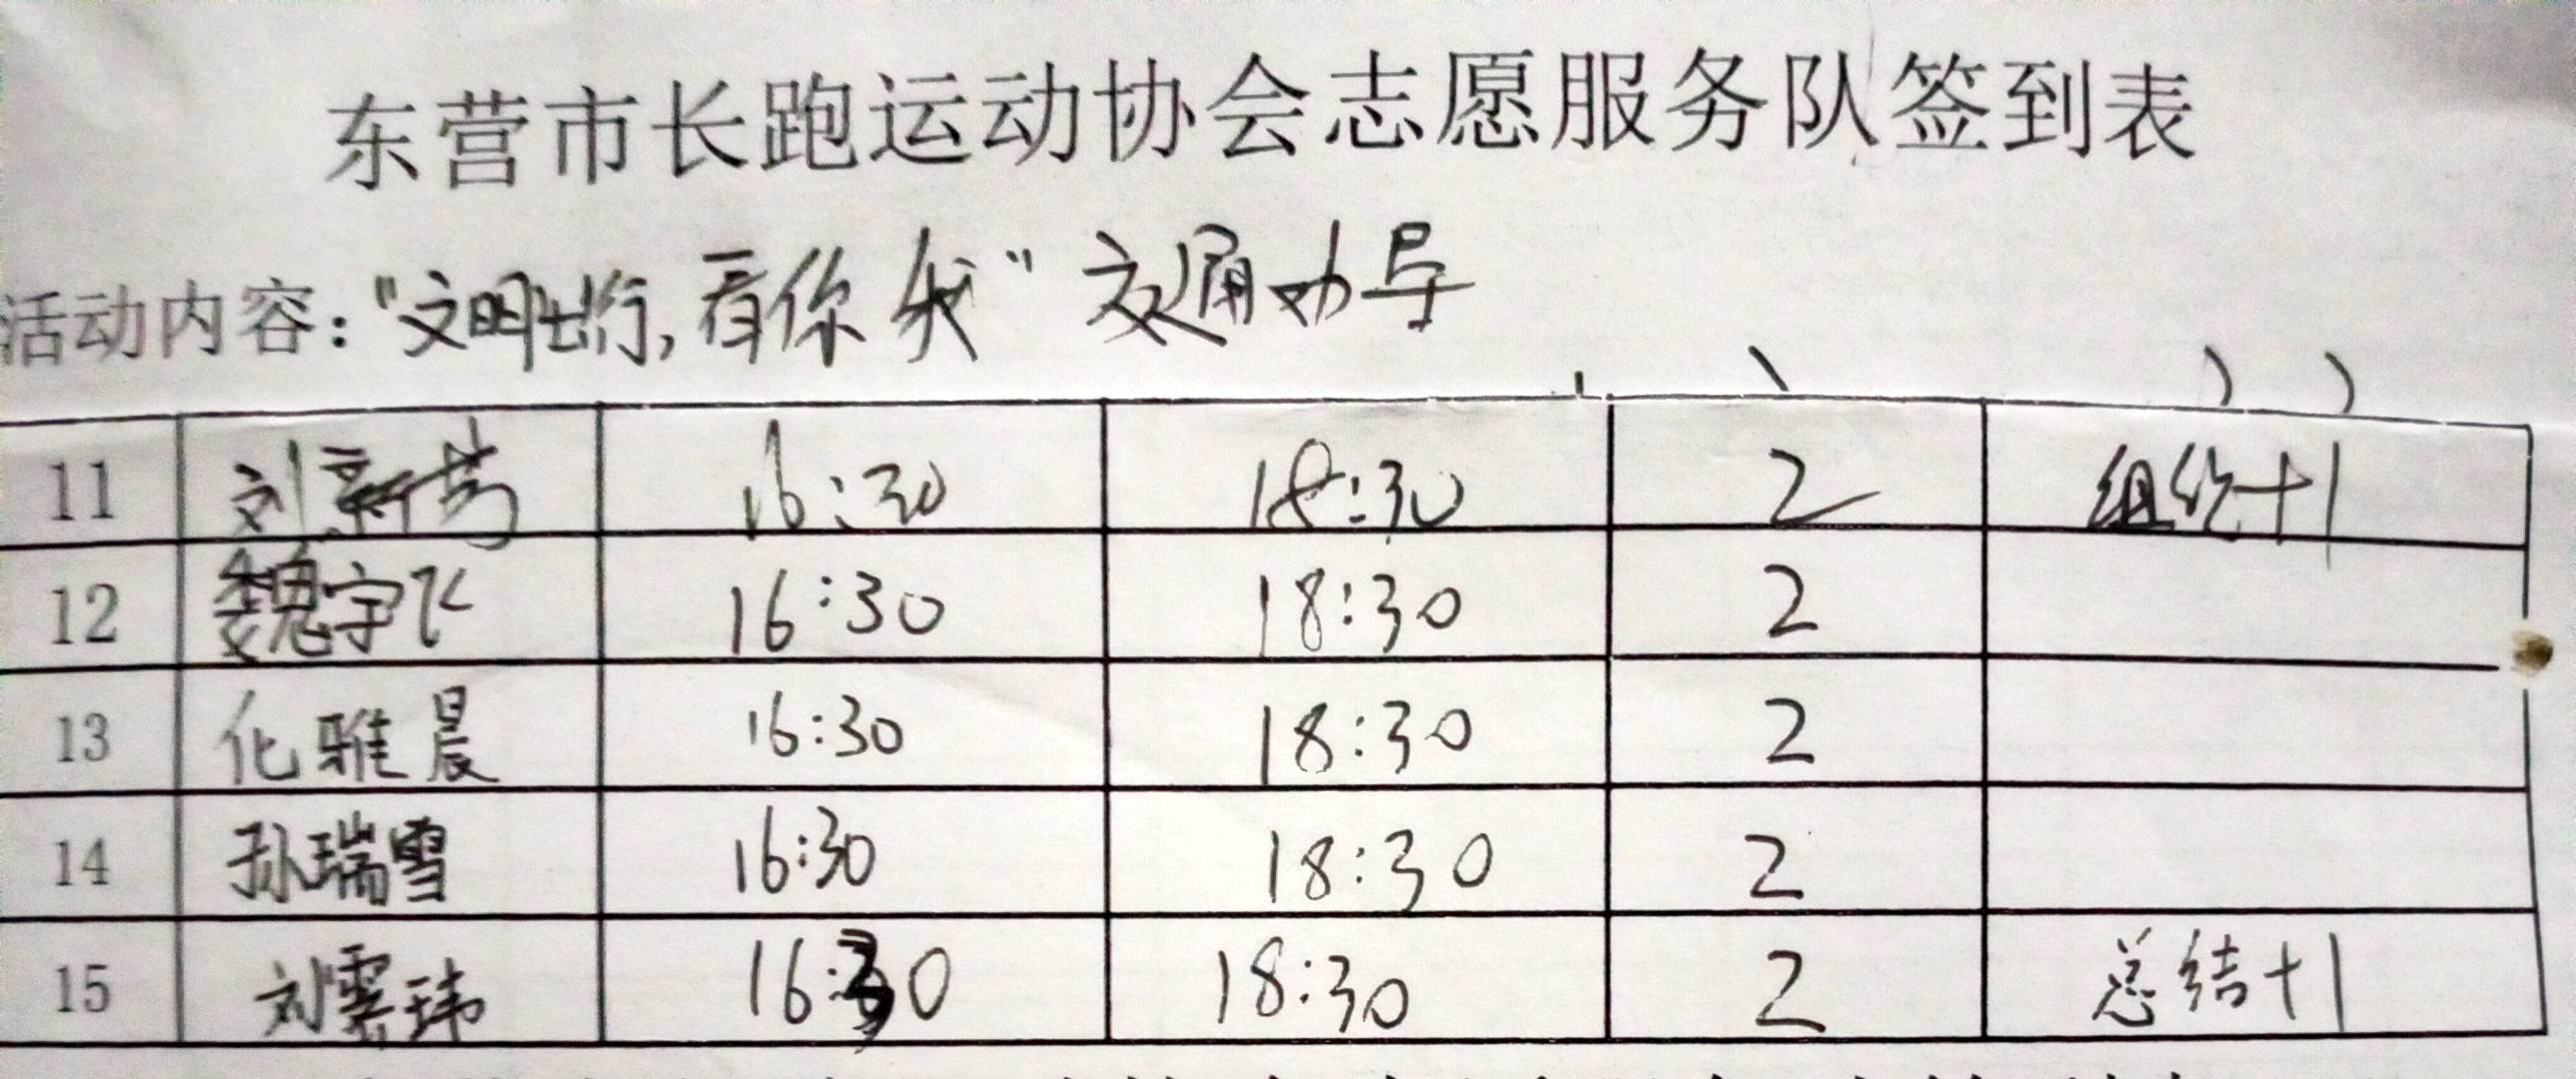 东营市长跑运动协会志愿服务队签到表
活动内容："文明出行,看你我"交通劝导
11 刘新芳 16:30 18:30 2 组织+1
12 魏宇飞 16:30 18:30 2
13 化雅晨 16:30 18:30 2
14 孙瑞雪 16:30 18:30 2
15 刘玮 16:30 18:30 2 总结+1